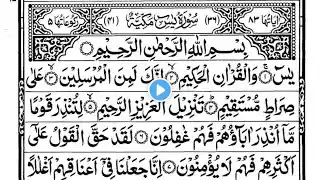 اٰیَاتُهَا ٨٣ (٣٦) سُوْرَةُ یٰسٓ مَکِّیَّةٌ (٤١) رُکُوْعَاتُهَا ٥
بِسْمِ اللّٰهِ الرَّحْمٰنِ الرَّحِیْمِ
یٰسٓ وَالْقُرْاٰنِ الْحَکِیْمِ اِنَّکَ لَمِنَ الْمُرْسَلِیْنَ عَلٰی
صِرَاطٍ مُّسْتَقِیْمٍ تَنْزِیْلَ الْعَزِیْزِ الرَّحِیْمِ لِتُنْذِرَ قَوْمًا
مَّاۤ اُنْذِرَ اٰبَآؤُهُمْ فَهُمْ غٰفِلُوْنَ لَقَدْ حَقَّ الْقَوْلُ عَلٰۤی
اَکْثَرِهِمْ فَهُمْ لَا یُؤْمِنُوْنَ اِنَّا جَعَلْنَا فِیْۤ اَعْنَاقِهِمْ اَغْلٰلًا